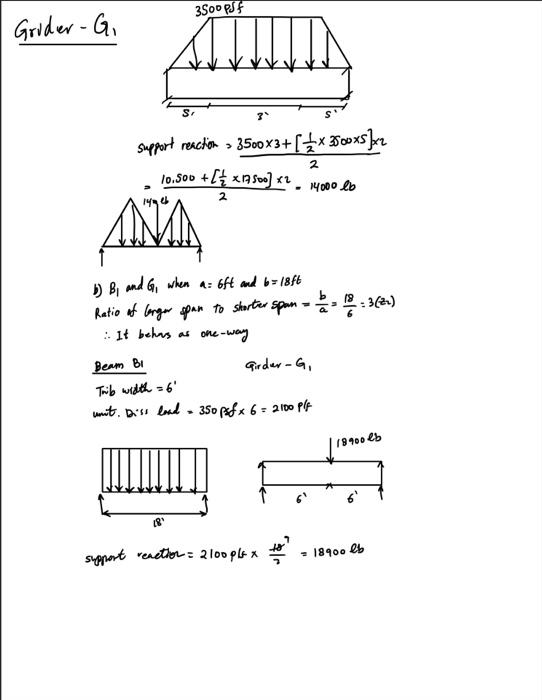 Grider - G1
3500 psf
5' 3' 5'
support reaction = 3500 x 3 + [1/2 x 3500 x 5] x 2 / 2
= 10,500 + [1/2 x 17500] x 2 / 2 = 14000 lb
14 lb
b) B1 and G1 when a = 6ft and b = 18ft
Ratio of larger span to shorter span = b/a = 18/6 = 3 (≥2)
∴ It behvs as one-way
Beam B1 Girder - G1
Trib width = 6'
unit. Diss load = 350 psf x 6 = 2100 plf
18900 lb
6' 6'
18'
support reaction = 2100 plf x 18/2 9 = 18900 lb